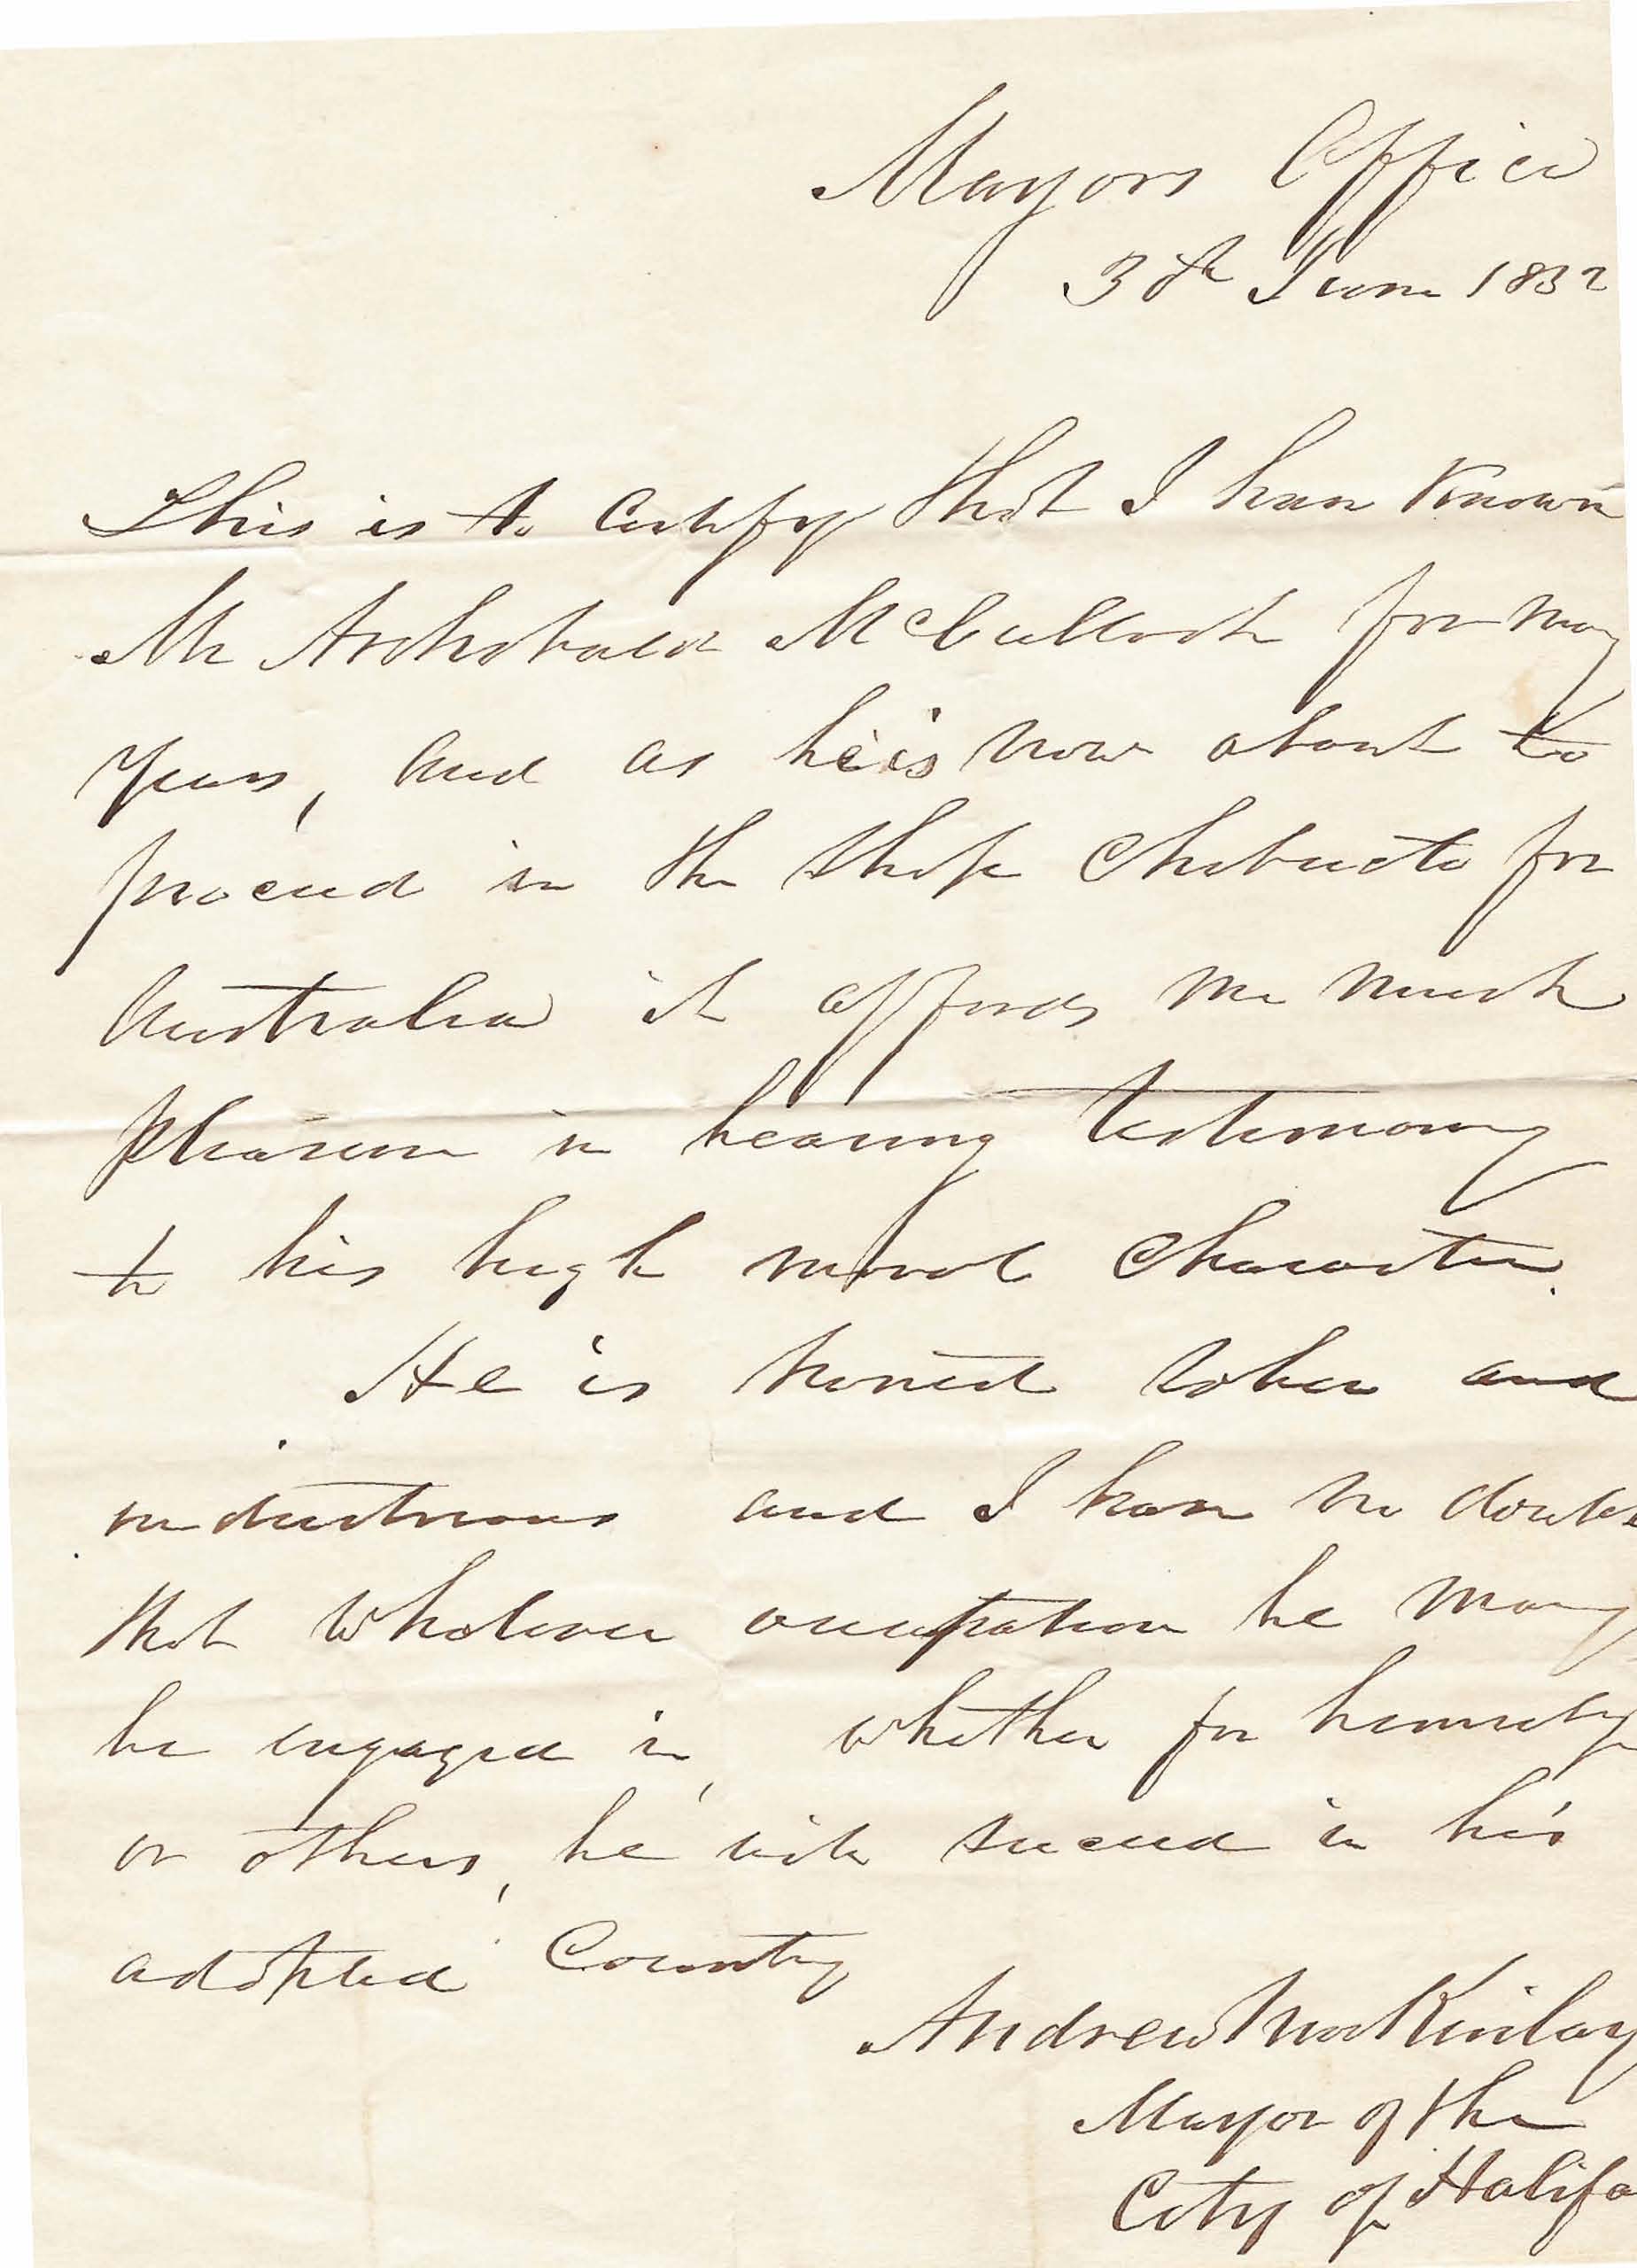 Mayors Office
30th June 1852
This is to Certify that I have Known
Mr Archibald McCulloch for many
Years, and as he is now about to
proceed in the Ship Chebucto for
Australia it affords me much
pleasure in bearing testimony
to his high moral Character.
He is honest sober and
industrious and I have no doubt
that whatever occupation he may
be engaged in, whether for himself
or others, he will succeed in his
adopted Country
Andrew MacKinlay
Mayor of the
City of Halifa